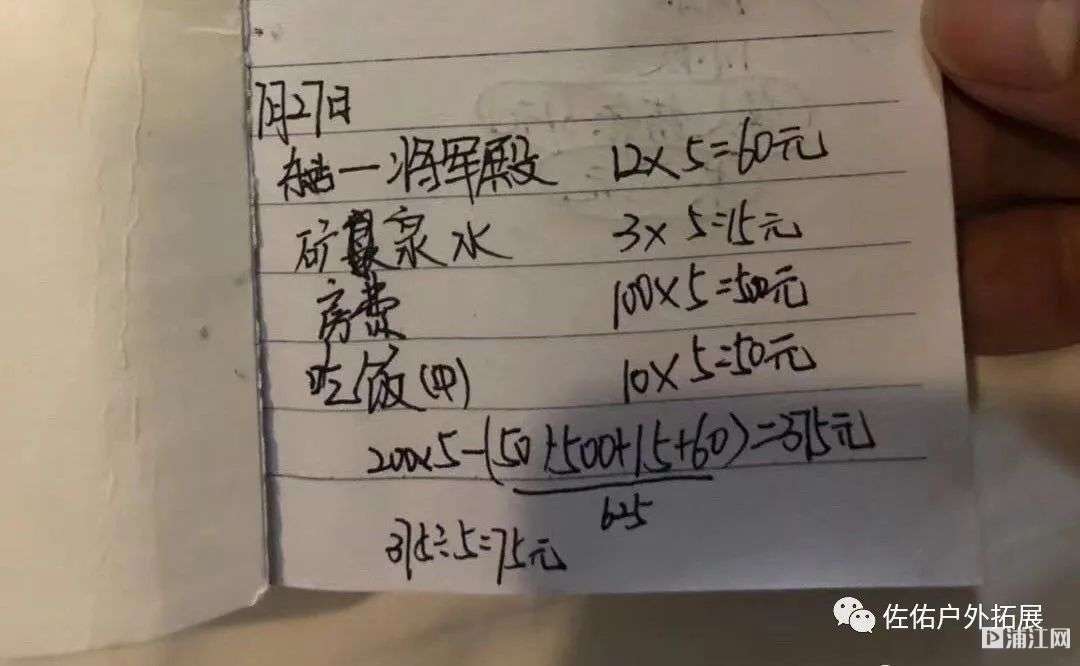 7月27日
一将军殿 12×5=60元
矿泉水 3×5=15元
房费 100×5=500元
吃饭(中) 10×5=50元
200×5-(50+500+15+60)=375元
625
375÷5=75元
佐佑户外拓展
浦江网